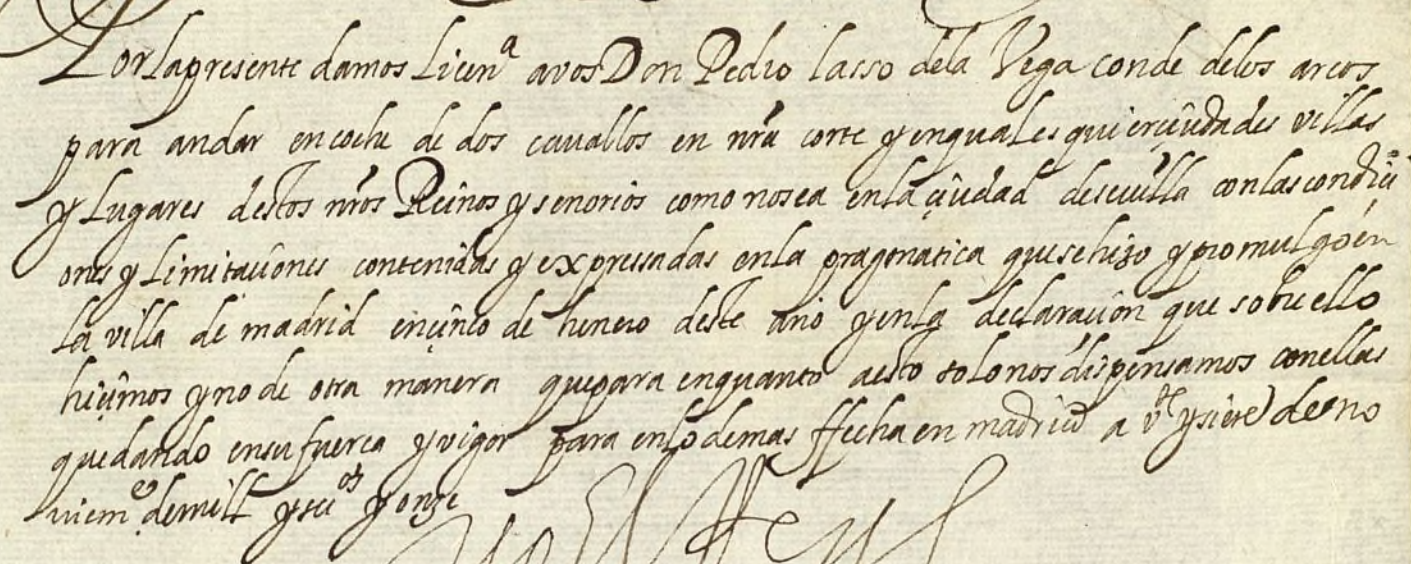 Por la presente damos licen^a a vos Don Pedro lasso dela Vega conde delos arcos
para andar en coche de dos cavallos en nrã corte y en quales quier çiudades villas
y Lugares destos nrõs Reinos y senorios como no sea en la çiudad de sevilla con las condiçi
ones y Limitaciones contenidas y expressadas en la pragmatica que se hizo y promulgo en
la villa de madrid en çinco de henero deste año y en la declaracion que sobre ello
hiçimos y no de otra manera que para en quanto a esto solo nos dispensamos con ellas
quedando en su fuerca y vigor para en lo demas ffecha en madrid a v^te y siete de no
viem^e de mill y sei^os y onze
yo el Rey